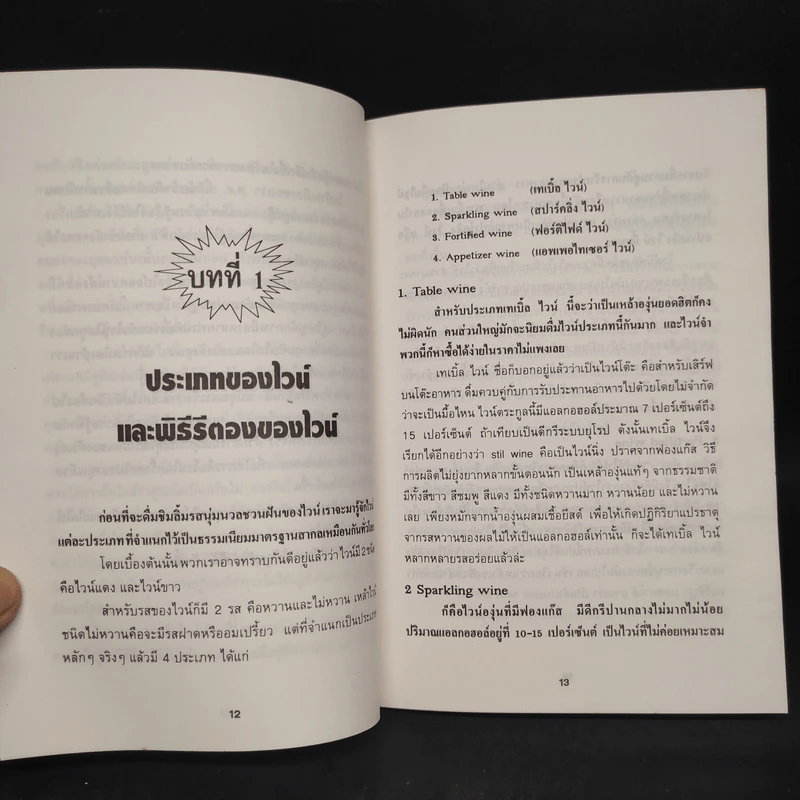 บทที่ 1
ประเภทของไวน์
และพิธีรีตองของไวน์
ก่อนที่จะดื่มชิมลิ้มรสนุ่มนวลชวนฝันของไวน์ เราจะมารู้จักไวน์
แต่ละประเภทที่จำแนกไว้เป็นธรรมเนียมมาตรฐานสากลเหมือนกันทั่วโลก
โดยเบื้องต้นนั้น พวกเราอาจทราบกันดีอยู่แล้วว่าไวน์มี 2 ชนิด
คือไวน์แดง และไวน์ขาว
สำหรับรสของไวน์ก็มี 2 รส คือหวานและไม่หวาน เหล้าไวน์
ชนิดไม่หวานคือจะมีรสฝาดหรืออมเปรี้ยว แต่ที่จำแนกเป็นประเภท
หลักๆ จริงๆ แล้วมี 4 ประเภท ได้แก่
12
1. Table wine (เทเบิ้ล ไวน์)
2. Sparkling wine (สปาร์คลิ่ง ไวน์)
3. Fortified wine (ฟอร์ติไฟด์ ไวน์)
4. Appetizer wine (แอพเพอไทเซอร์ ไวน์)
1. Table wine
สำหรับประเภทเทเบิ้ล ไวน์ นี้จะว่าเป็นเหล้าองุ่นยอดฮิตก็คง
ไม่ผิดนัก คนส่วนใหญ่มักจะนิยมดื่มไวน์ประเภทนี้กันมาก และไวน์จำ
พวกนี้ก็หาซื้อได้ง่ายในราคาไม่แพงเลย
เทเบิ้ล ไวน์ ชื่อก็บอกอยู่แล้วว่าเป็นไวน์โต๊ะ คือสำหรับเสิร์ฟ
บนโต๊ะอาหาร ดื่มควบคู่กับการรับประทานอาหารไปด้วยโดยไม่จำกัด
ว่าจะเป็นมื้อไหน ไวน์ตระกูลนี้มีแอลกอฮอล์ประมาณ 7 เปอร์เซ็นต์ถึง
15 เปอร์เซ็นต์ ถ้าเทียบเป็นดีกรีระบบยุโรป ดังนั้นเทเบิ้ล ไวน์จึง
เรียกได้อีกอย่างว่า stil wine คือเป็นไวน์นิ่ง ปราศจากฟองแก๊ส วิธี
การผลิตไม่ยุ่งยากหลากขั้นตอนนัก เป็นเหล้าองุ่นแท้ๆ จากธรรมชาติ
มีทั้งสีขาว สีชมพู สีแดง มีทั้งชนิดหวานมาก หวานน้อย และไม่หวาน
เลย เพียงหมักจากน้ำองุ่นผสมเชื้อยีสต์ เพื่อให้เกิดปฏิกิริยาแปรธาตุ
จากรสหวานของผลไม้ให้เป็นแอลกอฮอล์เท่านั้น ก็จะได้เทเบิ้ล ไวน์
หลากหลายรสอร่อยแล้วล่ะ
2 Sparkling wine
ก็คือไวน์องุ่นที่มีฟองแก๊ส มีดีกรีปานกลางไม่มากไม่น้อย
ปริมาณแอลกอฮอล์อยู่ที่ 10-15 เปอร์เซ็นต์ เป็นไวน์ที่ไม่ค่อยเหมาะสม
13